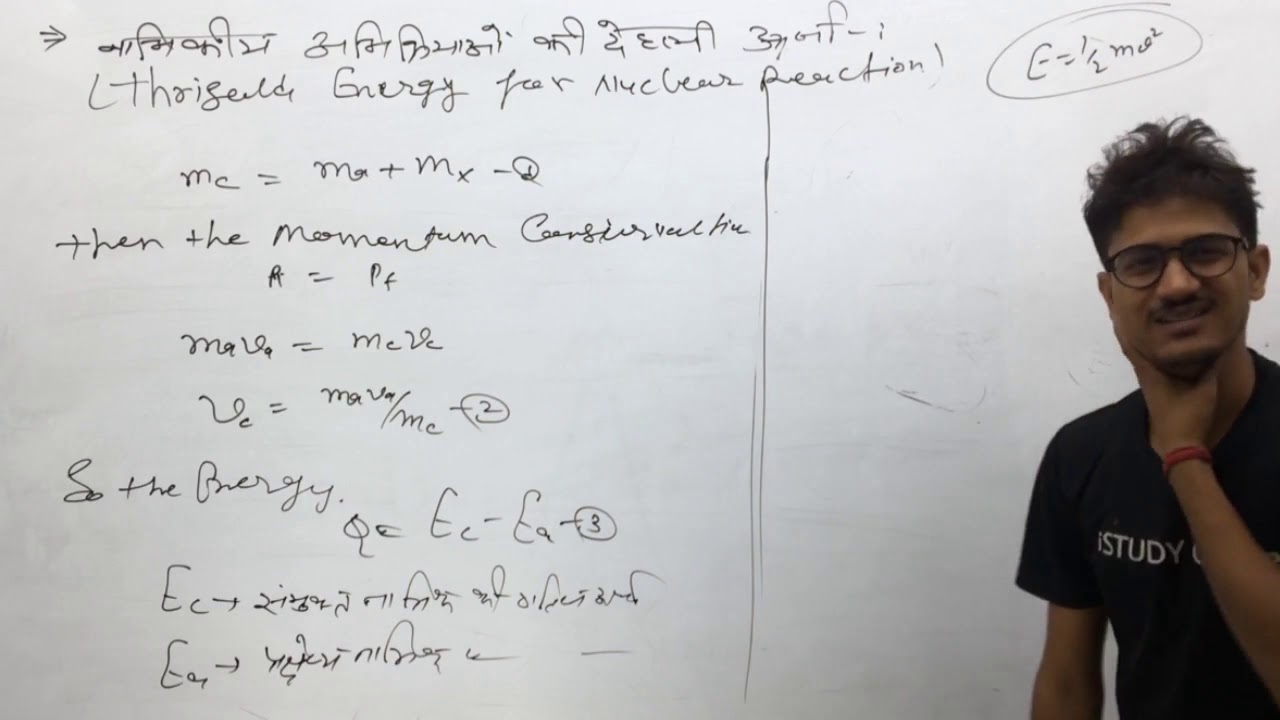 ⇒ नाभिकीय अभिक्रियाओं की देहली ऊर्जा-:
(Thrigeuld Energy for Nuclear Reaction)
E = 1/2 mv²
mc = ma + Mx - ①
then the Momentum
Pi = Pf
mava = mcvc
vc = mava/mc - ②
So the Energy.
Q = Ec - Ea - ③
Ec → संयुक्त नाभिक की गतिज ऊर्जा
Ea → नाभिक " —
iSTUDY